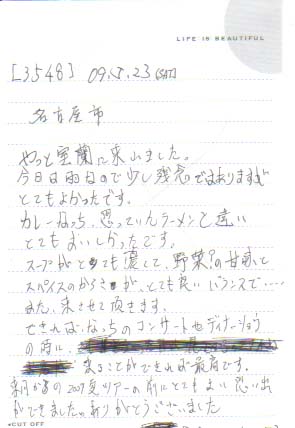 LIFE IS BEAUTIFUL
[3548] 09.5.23 (SAT)
名古屋市
やっと室蘭に来れました。
今日は雨なので少し残念ではありますが
とてもよかったです。
カレーなっち、思っていたラーメンと違い
とてもおいしかったです。
スープがとても濃くて、野菜?の甘味と
スパイスのからさが、とても良いバランスで‥‥
また、来させて頂きます。
できれば、なっちのコンサートやディナーショウ
の時に、
来ることができれば最高です。
来月からの2009夏ツアーの前にとてもよい思い出
ができました。ありがとうございました
CUT OFF